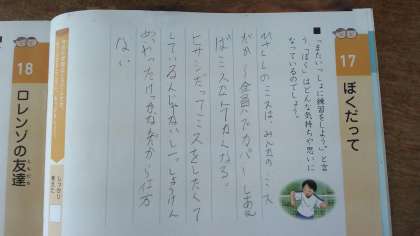 17
ぼくだって
■「またいっしょに練習をしよう。」と言
う「ぼく」はどんな気持ちや思いに
なっているのでしょう。
ひさしのミスは、みんなのミス
だから全員でカバーしあえ
ばミスだってなくなる。
ヒサシだってミスをしたくて
しているんじゃないし、一しょけん
めいやったけっかなんだから仕方
ない
18
ロレンゾの友達
ともだち